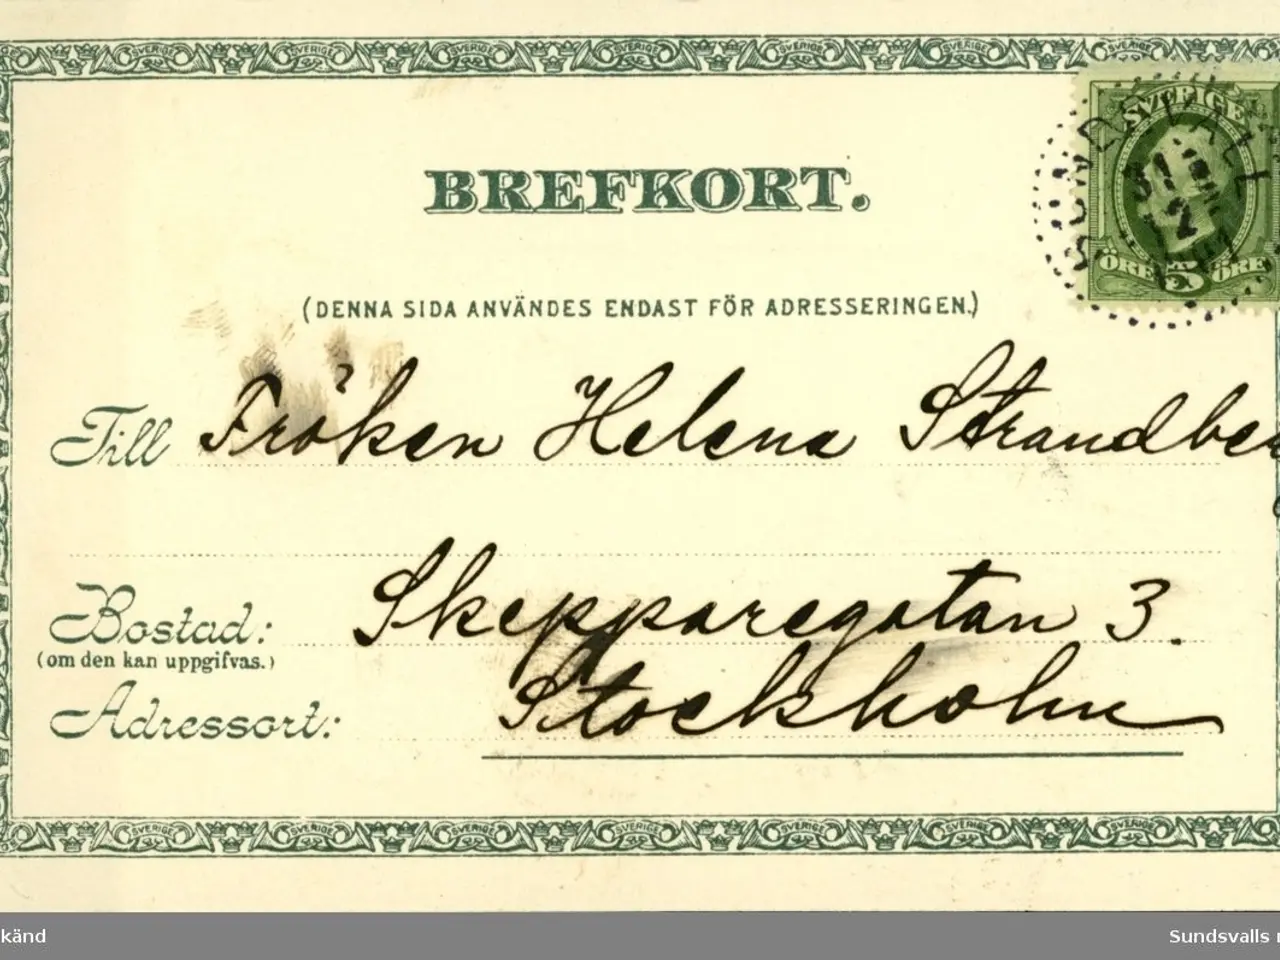 SVERIGE SVERIGE SVERIGE SVERIGE SVERIGE SVERIGE SVERIGE
BREFKORT.
SVERIGE
SUNDSVALL
31
12
ÖRE 5 ÖRE
(DENNA SIDA ANVÄNDES ENDAST FÖR ADRESSERINGEN.)
Till Fröken Helena Strandbe
Bostad: Skepparegatan 3.
(om den kan uppgifvas.)
Adressort: Stockholm
SVERIGE SVERIGE SVERIGE SVERIGE SVERIGE SVERIGE SVERIGE
känd
Sundsvalls